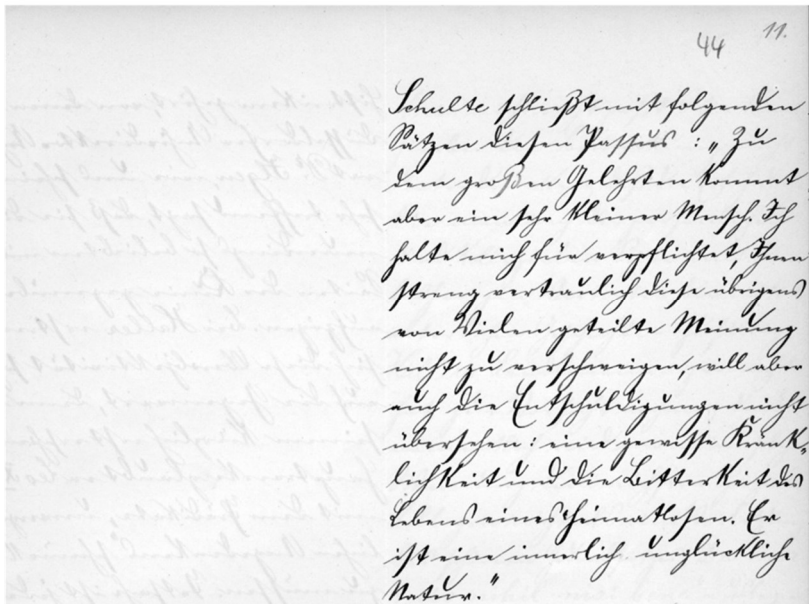 11.
44
Schulte schließt mit folgenden
Sätzen diesen Passus: „Zu
dem großen Gelehrten kommt
aber ein sehr kleiner Mensch. Ich
halte mich für verpflichtet, Ihnen
streng vertraulich diese übrigens
von Vielen geteilte Meinung
nicht zu verschweigen, will aber
auch die Entschuldigungen nicht
übersehen: eine gewisse Kränk-
lichkeit und die Bitterkeit des
Lebens eines Heimatlosen. Er
ist eine innerlich unglückliche
Natur."